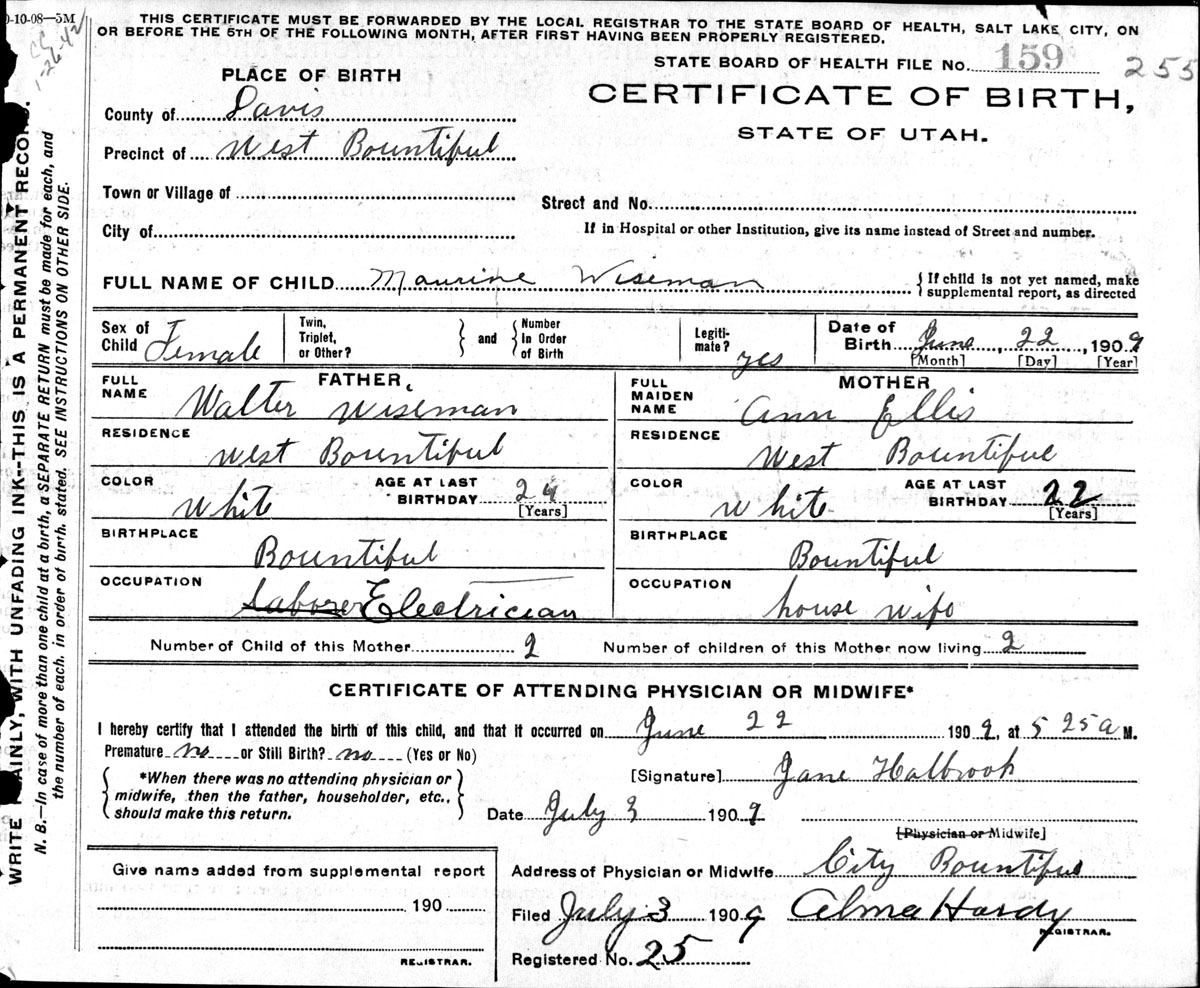 0-10-08—5M
THIS CERTIFICATE MUST BE FORWARDED BY THE LOCAL REGISTRAR TO THE STATE BOARD OF HEALTH, SALT LAKE CITY, ON
OR BEFORE THE 5TH OF THE FOLLOWING MONTH, AFTER FIRST HAVING BEEN PROPERLY REGISTERED.
1-26-42
STATE BOARD OF HEALTH FILE No. 159 255
PLACE OF BIRTH
CERTIFICATE OF BIRTH,
STATE OF UTAH.
County of Davis
Precinct of West Bountiful
Town or Village of
Street and No.
City of
If in Hospital or other Institution, give its name instead of Street and number.
FULL NAME OF CHILD Maurine Wiseman
{If child is not yet named, make
supplemental report, as directed
Sex of Child Female
Twin, Triplet, or Other?
and
Number In Order of Birth
Legiti- mate? yes
Date of Birth June, 22, 1909
[Month] [Day] [Year]
FATHER
FULL NAME Walter Wiseman
RESIDENCE West Bountiful
COLOR White
AGE AT LAST BIRTHDAY 24 [Years]
BIRTHPLACE Bountiful
OCCUPATION Laborer Electrician
MOTHER
FULL MAIDEN NAME Ann Ellis
RESIDENCE West Bountiful
COLOR White
AGE AT LAST BIRTHDAY 22 [Years]
BIRTHPLACE Bountiful
OCCUPATION house wife
Number of Child of this Mother 2 Number of children of this Mother now living 2
CERTIFICATE OF ATTENDING PHYSICIAN OR MIDWIFE*
I hereby certify that I attended the birth of this child, and that it occurred on June 22 1909, at 5 25 a M.
Premature no or Still Birth? no (Yes or No)
*When there was no attending physician or
midwife, then the father, householder, etc.,
should make this return.
[Signature] Jane Holbrook
Date July 3 1909
[Physician or Midwife]
Give name added from supplemental report
190
REGISTRAR.
Address of Physician or Midwife City Bountiful
Filed July 3 1909 Alma Hardy
REGISTRAR.
Registered No. 25
WRITE PLAINLY, WITH UNFADING INK--THIS IS A PERMANENT RECORD.
N. B.—In case of more than one child at a birth, a SEPARATE RETURN must be made for each, and
the number of each, in order of birth, stated. SEE INSTRUCTIONS ON OTHER SIDE.